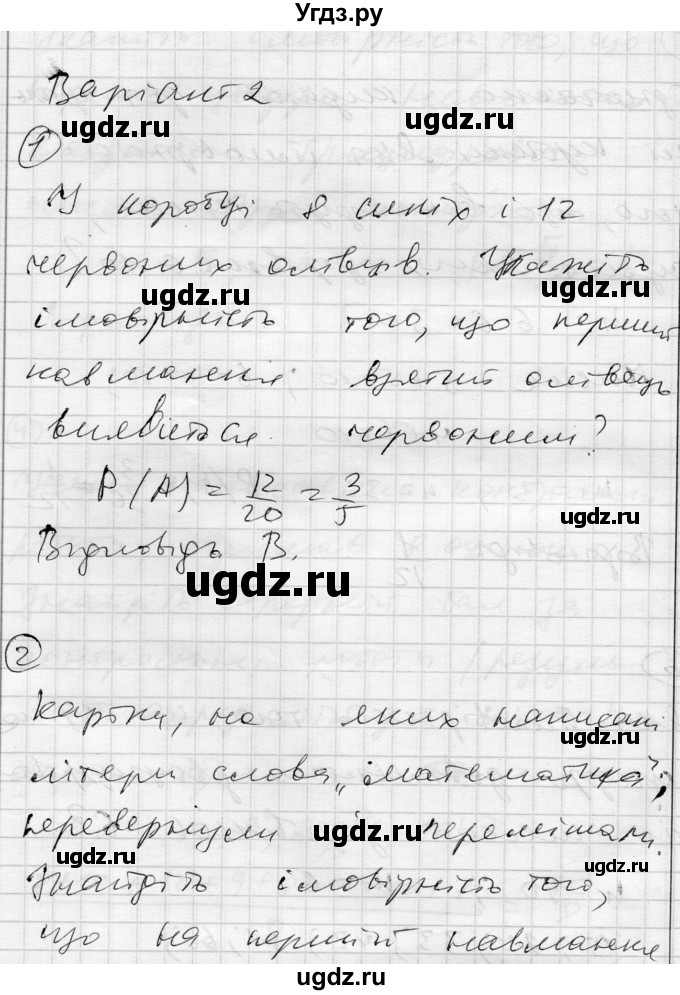 Угдз.ру
Варіант 2
ugdz.ru ugdz.ru
1
У коробці 8 синіх і 12
червоних олівців. Укажіть
ugdz.ru ugdz.ru
імовірність того, що перший
навмання взятий олівець
виявиться червоним?
ugdz.ru ugdz.ru
P(A) = 12/20 = 3/5
ugdz.ru
Відповідь В.
ugdz.ru
2
Картки, на яких написані
ugdz.ru
літери слова „математика",
перевернули і перемішали.
ugdz.ru
ugdz.ru ugdz.ru
Знайдіть імовірність того,
що на першій навмання
ugdz.ru ugdz.ru
ugdz.ru